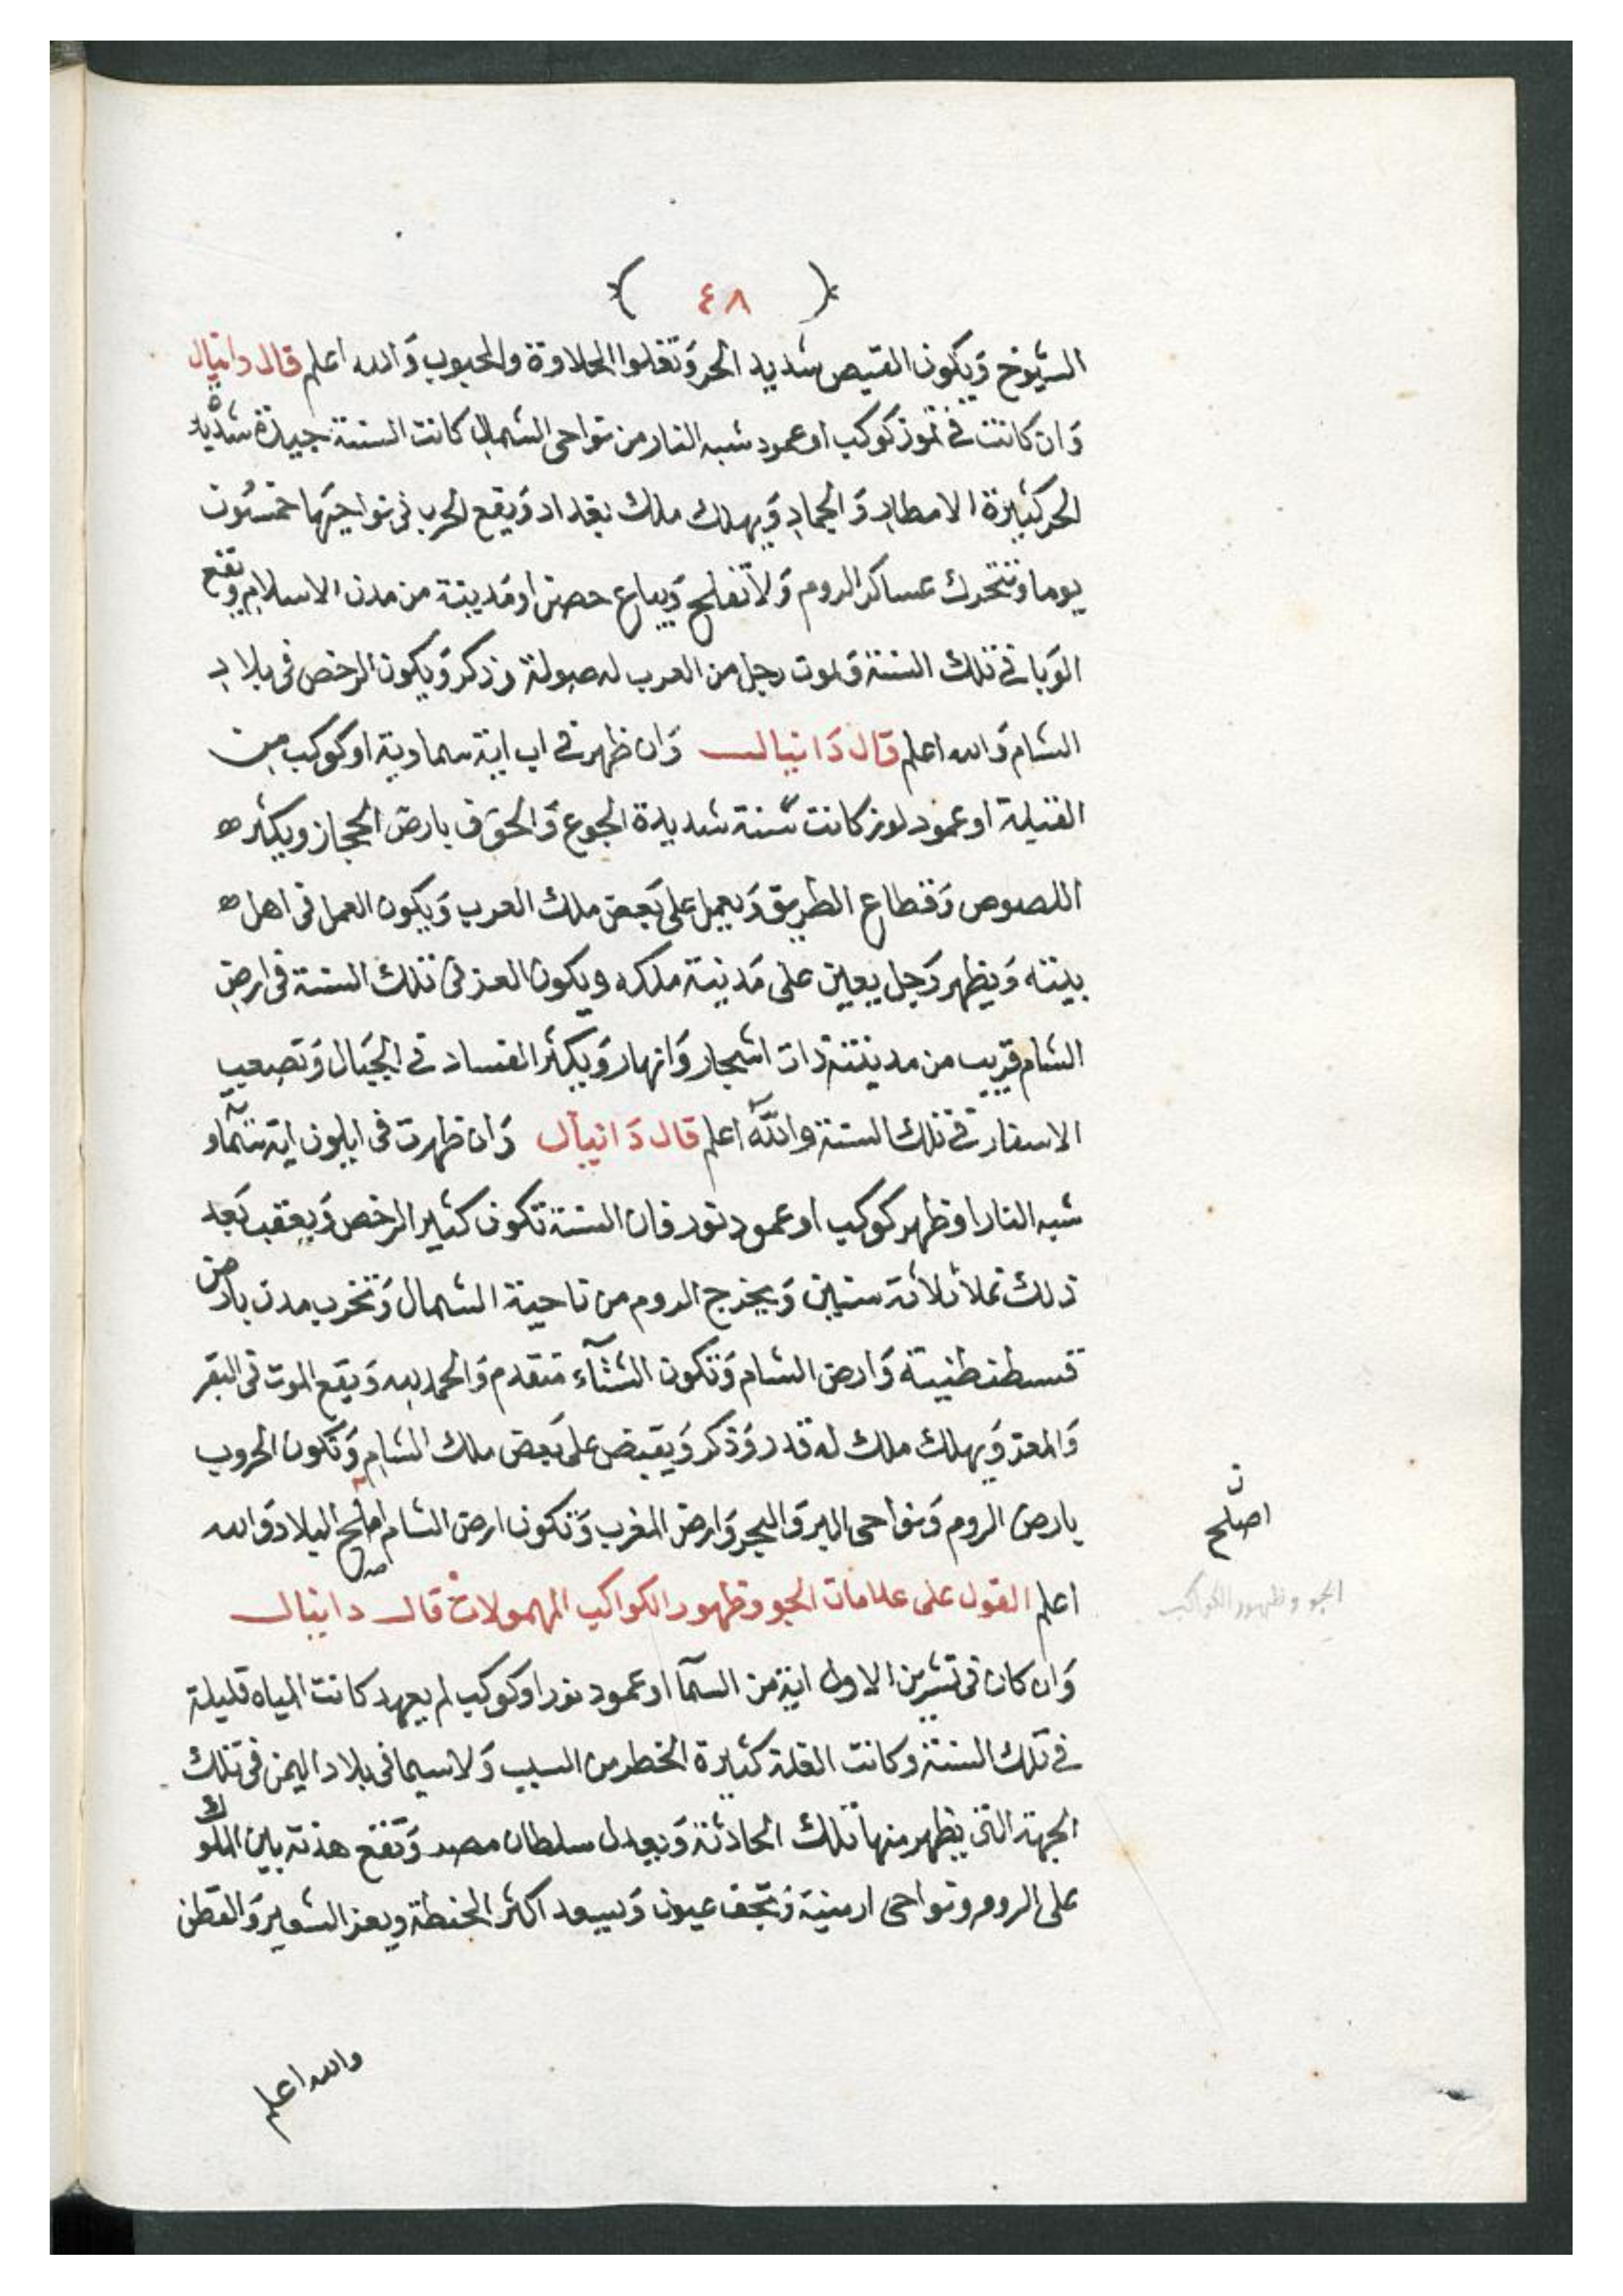 ( ٤٨ )
الشيوخ وَيكون القيص شديد الحر وَتغلوا الحلاوة والحبوب وَالله اعلم قال دانيال
وَان كانت في تموز كوكب او عمود شبه النار من نواحى الشمال كانت السنة جيدة شديدة
الحر كثيرة الامطار وَالجماد وَيهلك ملك بغداد وَيقع الحرب في نواحيَها خمسُون
يوما وتتحرك عساكر الروم وَلا تفلح وَيباع حصن او مَدينة من مدن الاسلام وتقع
الوَبا في تلك السنة وَيموت رجل من العرب له صولة وذكر وَيكون الرخص في بلاد
الشام وَالله اعلم قال دَانيال وَان ظهر في اب اية سماوية او كوكب من
القبلة او عمود نور كانت سنة شديدة الجوع وَالخوف بارض الحجاز ويكثر
اللصوص وَقطاع الطريق وَيعمل على بَعض ملك العرب وَيكون العمل في اهل
بيته وَيظهر رَجل يعين على مَدينة ملكه ويكون العز في تلك السنة في ارض
الشام قريب من مدينة ذات اشجار وَانهار وَيكثر الفساد في الجبَال وَتصعب
الاسفار في تلك السنة والله اعلم قال دَانيال وَان ظهرت في ايلون اية سَماو
شبه النار او ظهر كوكب او عمود نور فان السنة تكون كثير الرخص وَيعقب بَعد
ذلك غلا ثلاثة سنين وَيخرج الروم من ناحية الشمال وَتخرب مدن بارض
قسطنطنية وَارض الشام وَتكون الشتآء متقدم وَالحمد لله وَيقع الموت في البَقر
وَالمعز وَيهلك ملك له قدر وَذكر وَيقبض على بَعض ملك الشام وَتكون الحروب
بارض الروم وَنواحى البر وَالبحر وَارض المغرب وَتكون ارض الشام اصلح البلاد وَالله
ن
اصلح
اعلم القول على علامات الجو وظهور الكواكب المهمولات قال دانيال
الجو وظهور الكواكب
وَان كان في تشرين الاول اية من السمآ او عمود نور او كوكب لم يعهد كانت المياه قليلة
في تلك السنة وكانت الغلة كثيرة الخطر من السبب وَلا سيما في بلاد اليمن في تلك
الجهة التى يظهر منها تلك الحادثة وَيعدل سلطان مصر وَتقع هدنة بين الملوك
على الروم ونواحى ارمنية وَتجف عيون وَيسعد اكثر الحنطة ويعز الشعير وَالقطن
والله اعلم